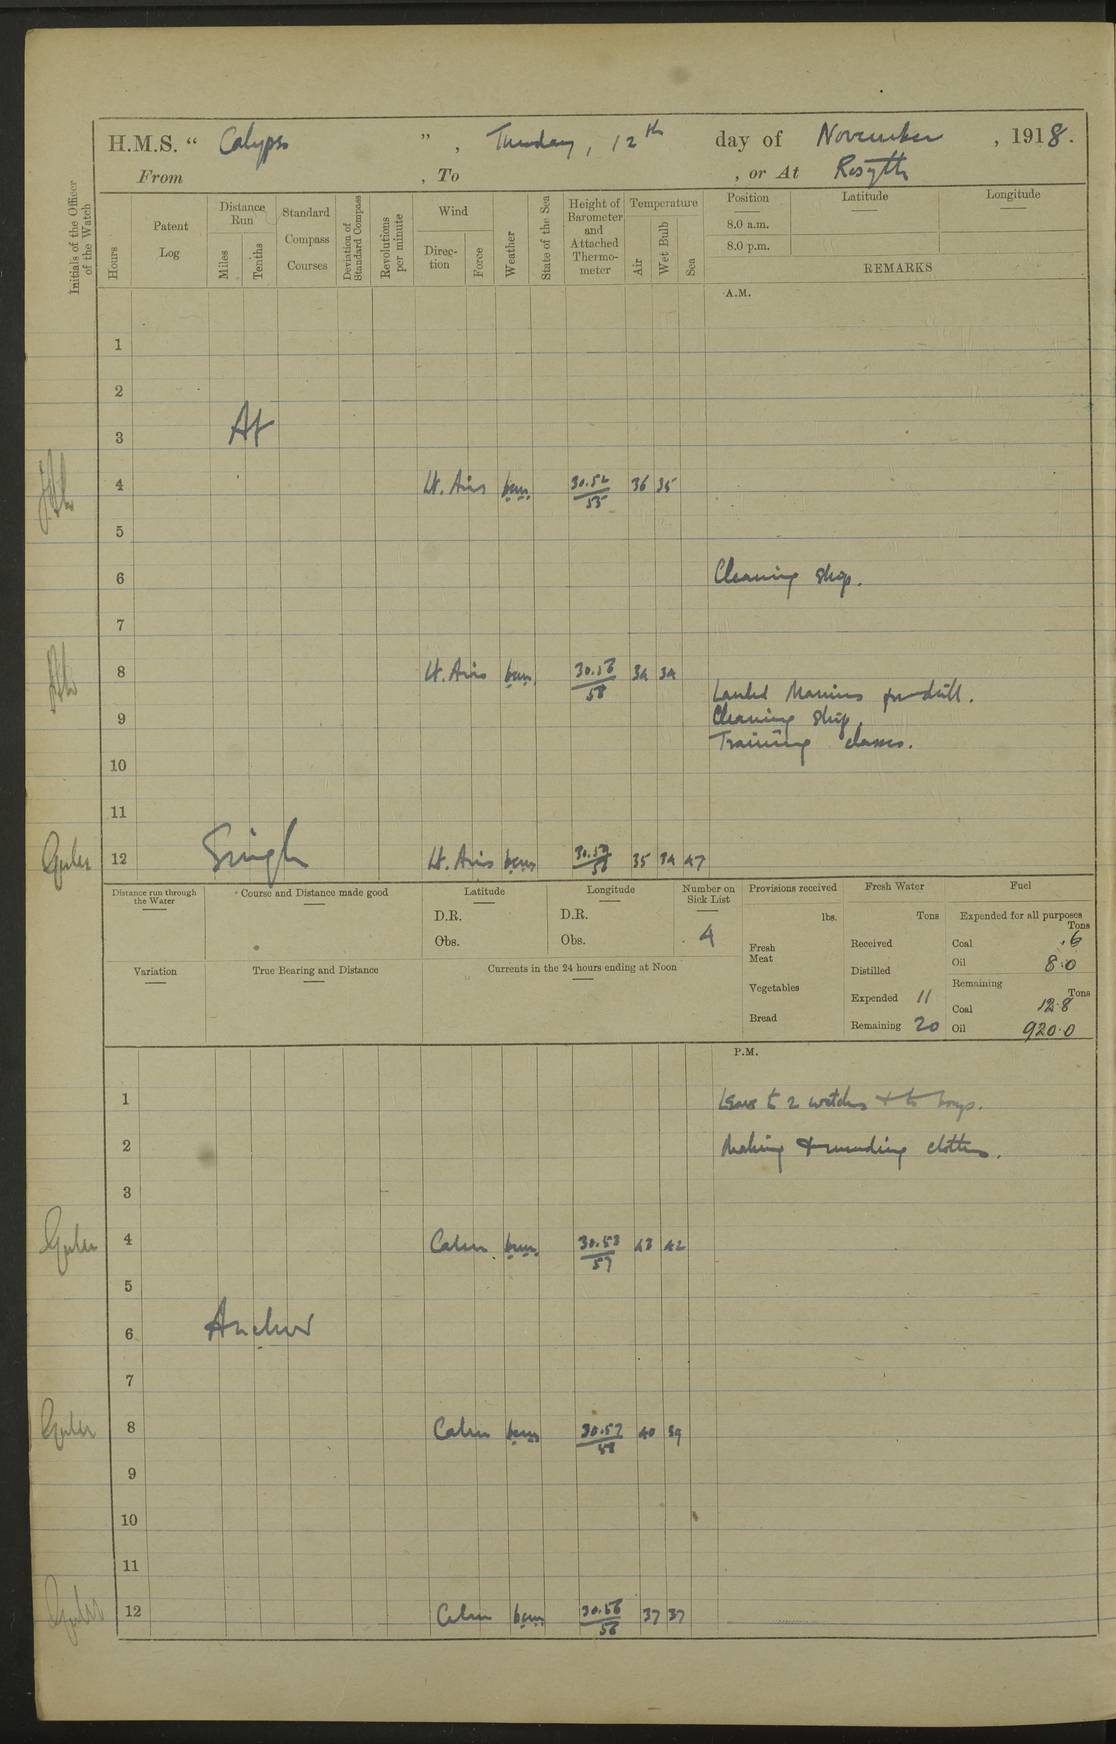 H.M.S. " Calypso ", Tuesday, 12th day of November, 1918.
From , To , or At Rosyth
Initials of the Officer of the Watch
Hours
Patent Log
Distance Run
Miles
Tenths
Standard Compass Courses
Deviation of Standard Compass
Revolutions per minute
Wind
Direction
Force
Weather
State of the Sea
Height of Barometer and Attached Thermometer
Temperature
Air
Wet Bulb
Sea
Position
Latitude
Longitude
8.0 a.m.
8.0 p.m.
REMARKS
A.M.
1
2
3 At
4 Lt. Airs 30.52 55 36 35
5
6 Cleaning ship.
7
8 Lt. Airs 58 34 34
Landed Marines for drill.
9 Cleaning ship.
Training classes.
10
11
12 Single Lt. Airs 35 34 47
Distance run through the Water
Course and Distance made good
Latitude
D.R.
Obs.
Longitude
D.R.
Obs.
Number on Sick List
4
Provisions received
lbs.
Fresh Meat
Vegetables
Bread
Fresh Water
Tons
Received
Distilled
Expended 11
Remaining 20
Fuel
Expended for all purposes
Tons
Coal .6
Oil 8.0
Remaining
Tons
Coal 12.8
Oil 920.0
Variation
True Bearing and Distance
Currents in the 24 hours ending at Noon
P.M.
1 Leave to 2 watches & to boys.
2 Making & mending clothes.
3
4 Calm 30.53 57 43 42
5
6 Anchor
7
8 Calm 30.57 58 40 39
9
10
11
12 Calm 30.56 56 37 37